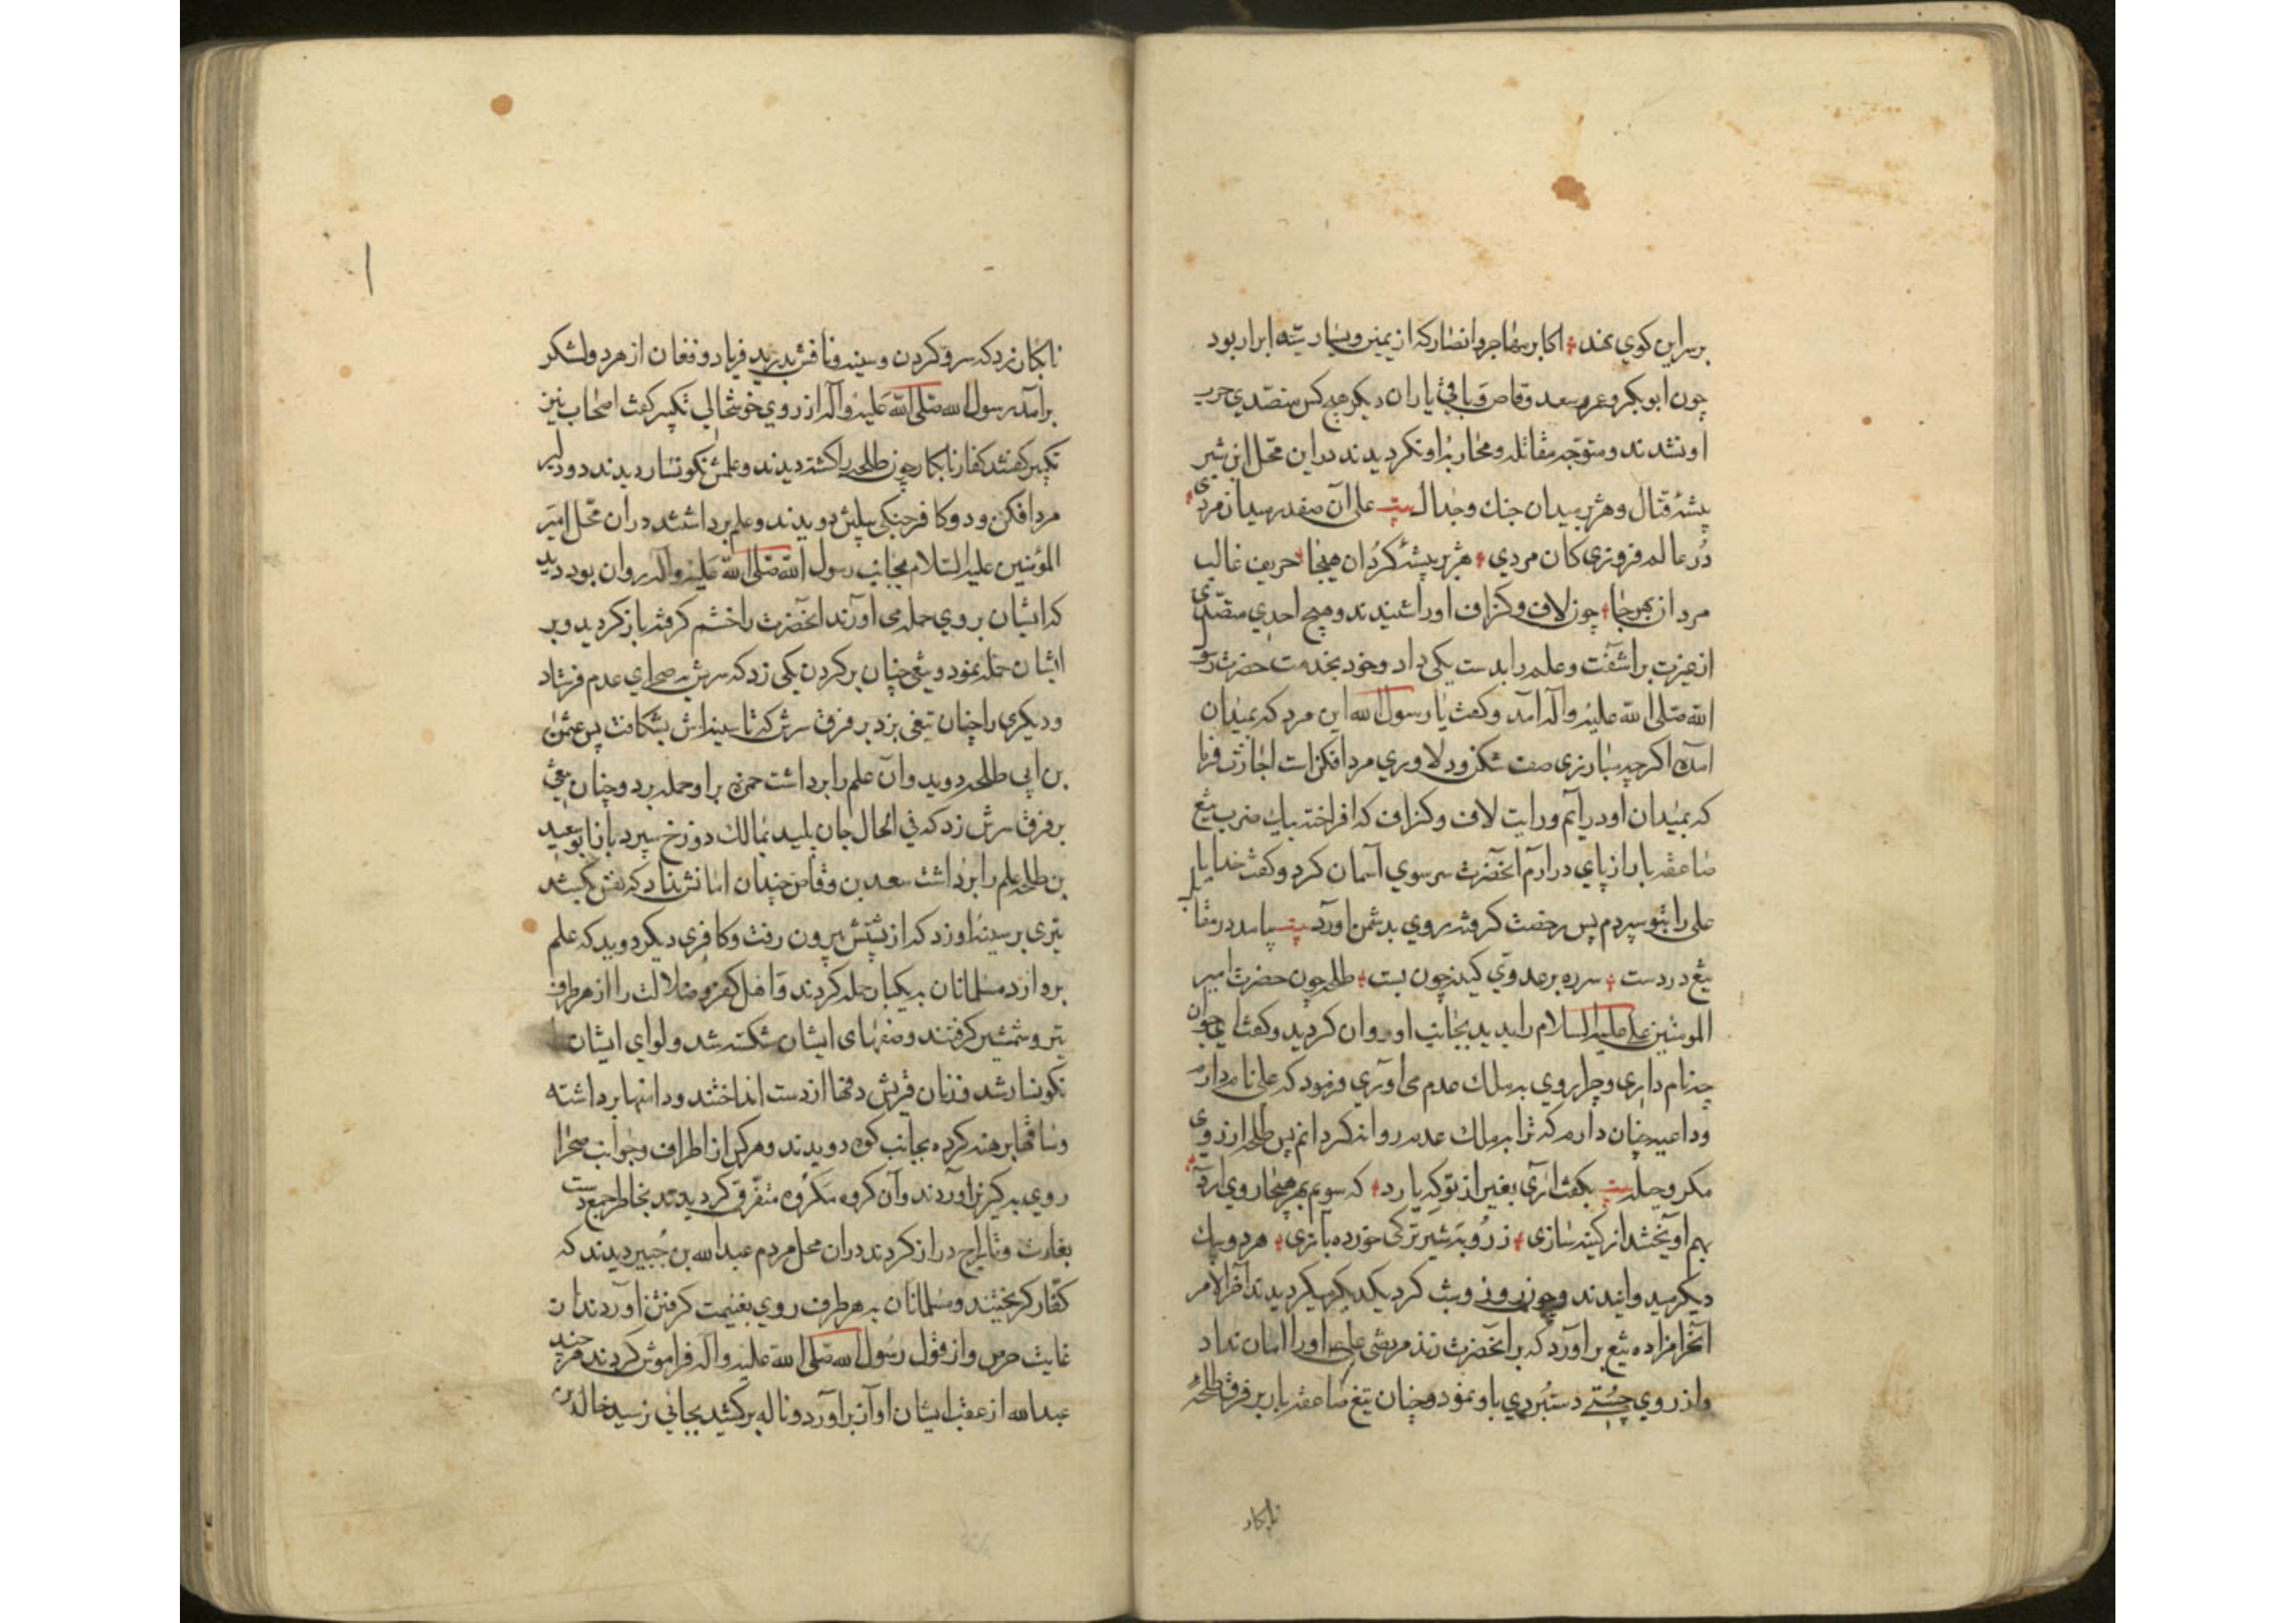 برسر این کوی نهند اکابر مهاجر و انصار که از یمین و یسار سیّد ابرار بود
چون ابوبکر و عمر و سعد وقاص و باقی یاران دیگر هیچ کس متصدّی حرب
او نشدند و متوجّه مقاتله و محاربهٔ او نکردیدند در این محّل ان شیر
بیشهٔ قتال و هژبر میدان جنك وجدال بیت علی آن صفدر میدان مردی
دُر عالم فروزی کان مردی هژبر بیشهٔ کُردان هیجا حریف غالب
مردان بهرجا چون لاف و کزاف اورا شنیدند و هیچ احدی متصّدی
از غیرت براشفت و علم را بدست یکی داد و خود بخدمت حضرت رسول
الله صّلی الله علیه و آله آمد و کفت یا رسول الله این مرد که بمیدان
آمده اکرچه مبارزی صف شکن و دلاوری مرد افکن است اجازت فرما
که بمیدان او درآیم و رایت لاف و کزاف که افراخته بیك ضرب تیغ
صاعقه بار از پای درآرم آنحضرت سر سوی آسمان کرد و کفت خدایا
علی را بتو سپردم پس رخصت کرفته روی بدشمن آورد بیت بیامد در مقابل
تیغ در دست سره بر عدوی کینه چون بست طلحه چون حضرت امیر
المومنین علی علیه السلام را بدید بجانب او روان کردید و کفت ای جوان
چه نام داری و چرا روی به ملك عدم می آوری فرمود که علی نام دارم
و داعیه چنان دارم که ترا به ملك عدم روانه کردانم پس طلحه از روی
مکر و حیله بیت بکفت آری بغیر از تو که یارد که سویم بهر هیجا روی آرد
بهم آویختند از کینه سازی ز رُوبه شیر ترکی خورده بازی هر دو بیك
دیکر میدوانیدند و چون روز و شب کرد یکدیکر میکردیدند آخر الامر
آنحرامزاده تیغ برآورد که بر آنحضرت زند مرتضی علی ع اورا امان نداد
و از روی چستی دستبردی باو نمود و چنان تیغ صاعقه بار بر فرق طلحهٔ
نابکار
نابکار زد که سر و کردن و سینه و نافش بدرید فریاد و فغان از هر دو لشکر
برآمد رسول الله صّلی الله علیه و آله از روی خوشحالی تکبیر کفت اصحاب نیز
تکبیر کفتند کفار نابکار چون طلحه را کشته دیدند و علمش نکونسار دیدند دو دلیر
مرد افکن و دو کافر جنکی پیلتن دویدند و علم برداشتند در آن محّل امیر
المؤمنین علیه السلام بجانب رسول الله صّلی الله علیه و آله روان بود دید
که ایشان بروی حمله می آورند آنحضرت را خشم کرفته باز کردید و بر
ایشان حمله نمود و تیغی چنان بر کردن یکی زد که سرش به صحرای عدم فرستاد
و دیکری را چنان تیغی بزد بر فرق سرش که تا سینه اش بشکافت پس عثمن
بن ابی طلحه دوید و آن علم را برداشت حمزه بر او حمله برد و چنان تیغی
بر فرق سرش زد که فی الحال جان پلید بمالك دوزخ سپرد بازنا بوسعید
بن طلحه علم را برداشت سعد بن وقاص چندان امانش نداد که نفس کشد
تیری بر سینهٔ او زد که از پشتش بیرون رفت و کافری دیکر دوید که علم
بردارد مسلمانان به یکبار حمله کردند و اهل کفر و ضلالت را از هر طرف
بتیر و شمشیر کرفتند و صفهای ایشان شکسته شد و لوای ایشان
نکونسار شد و زنان قریش دفها از دست انداختند و دامنها برداشته
و ساقها برهنه کرده بجانب کوه دویدند و هر کس از اطراف و جوانب صحرا
روی به کریز آوردند و آن کروه مکروه متفرّق کردیدند بخاطر جمع دست
بغارت و تاراج دراز کردند در آن محل مردم عبدالله بن جُبیر دیدند که
کفّار کریختند و مسلمانان به هر طرف روی بغنیمت کرفتن آوردند از
غایت حرص و از قول رسول الله صّلی الله علیه و آله فراموش کردند هر چند
عبدالله از عقب ایشان آواز برآورد و ناله برکشید بجائی نرسید خالد بن